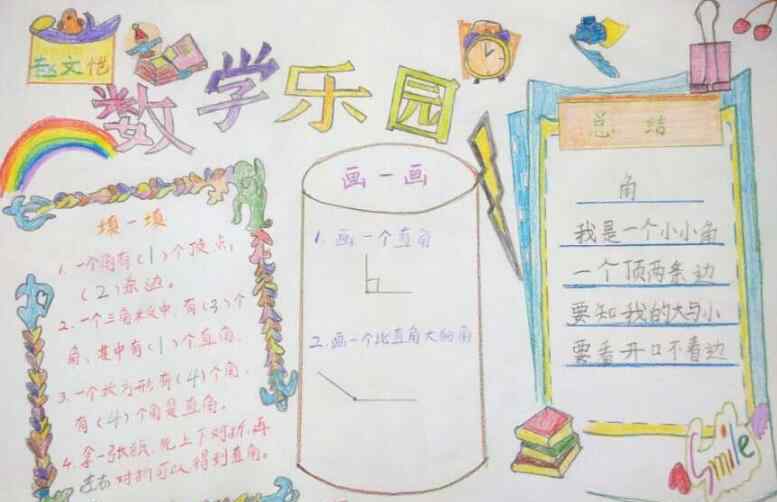 赵文恺
数学乐园
填一填
1.一个角有(1)个顶点,
(2)条边。
2.一个三角板中,有(3)个
角,其中有(1)个直角。
3.一个长方形有(4)个角,
有(4)个角是直角。
4.拿一张纸,先上下对折,再
左右对折可以得到直角。
画一画
1.画一个直角
2.画一个比直角大的角
总结
角
我是一个小小角
一个顶两条边
要知我的大与小
要看开口不看边
Smile